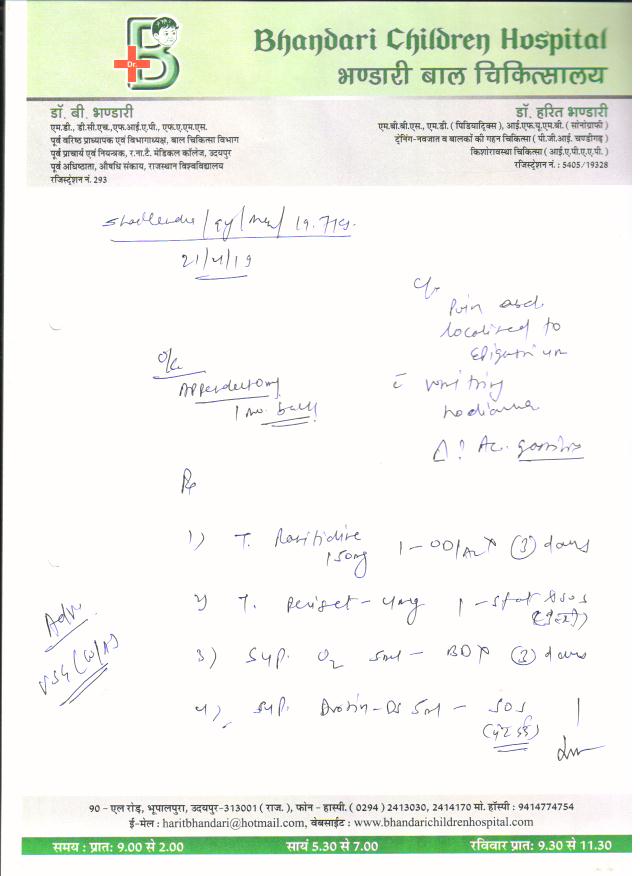 Dr.
B
Bhandari Children Hospital
भण्डारी बाल चिकित्सालय
डॉ. बी. भण्डारी
एम.डी., डी.सी.एच.,एफ.आई.ए.पी., एफ.ए.एम.एस.
पूर्व वरिष्ठ प्राध्यापक एवं विभागाध्यक्ष, बाल चिकित्सा विभाग
पूर्व प्राचार्य एवं नियन्त्रक, र.ना.टै. मेडिकल कॉलेज, उदयपुर
पूर्व अधिष्ठाता, औषधि संकाय, राजस्थान विश्वविद्यालय
रजिस्ट्रेशन नं. 293
डॉ. हरित भण्डारी
एम.बी.बी.एस., एम.डी. ( पिडियाट्रिक्स ), आई.एफ.यू.एम.बी. ( सोनोग्राफी )
ट्रेनिंग-नवजात व बालकों की गहन चिकित्सा ( पी.जी.आई. चण्डीगढ़ )
किशोरावस्था चिकित्सा ( आई.ए.पी.ए.ए.पी. )
रजिस्ट्रेशन नं. : 5405/19328
/ 9y / / 19.7 kg.
21/4/19
c/o
Pain abd.
localised to
Epigastrium
c̄ vomiting
no diarrhea
Δ ? Ac. gastritis
Appendectomy
1 mo. back
Rx
1) T. Ranitidine
150mg 1 - OD/AC x (3) days
2) T. Periset - 4mg 1 - stat & SOS
3) Syp. O2 5ml - BD x (3) days
4) Syp. Brotin-DS 5ml - SOS
Adv.
USG (W/A)
90 - एल रोड़, भूपालपुरा, उदयपुर-313001 ( राज. ), फोन - हास्पी. ( 0294 ) 2413030, 2414170 मो. हॉस्पी : 9414774754
ई-मेल : haritbhandari@hotmail.com, वेबसाईट : www.bhandarichildrenhospital.com
समय : प्रातः 9.00 से 2.00 सायं 5.30 से 7.00 रविवार प्रातः 9.30 से 11.30